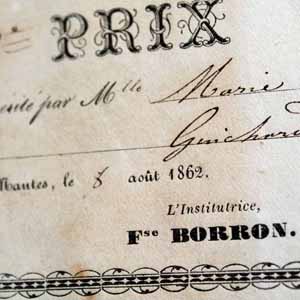 PRIX
mérité par Mlle Marie
Guichard
Nantes, le 8 août 1862.
L'Institutrice,
Fse BORRON.